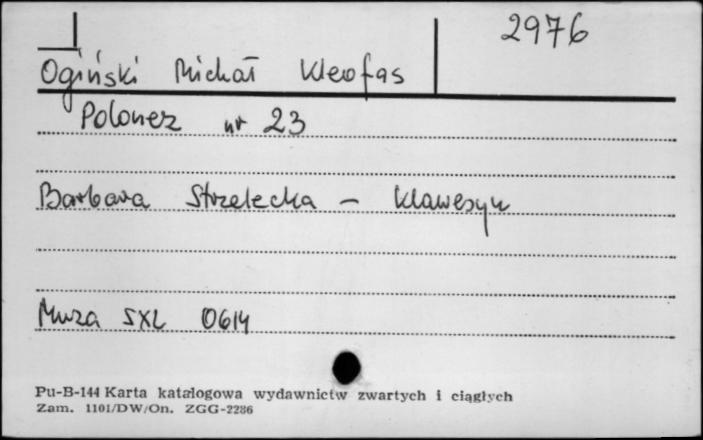 2976
Ogiński Michał Kleofas
Polonez nr 23
Barbara Strzelecka - klawesyn
Muza SXL 0614
Pu-B-144 Karta katalogowa wydawnictw zwartych i ciągłych
Zam. 1101/DW/On. ZGG-2286